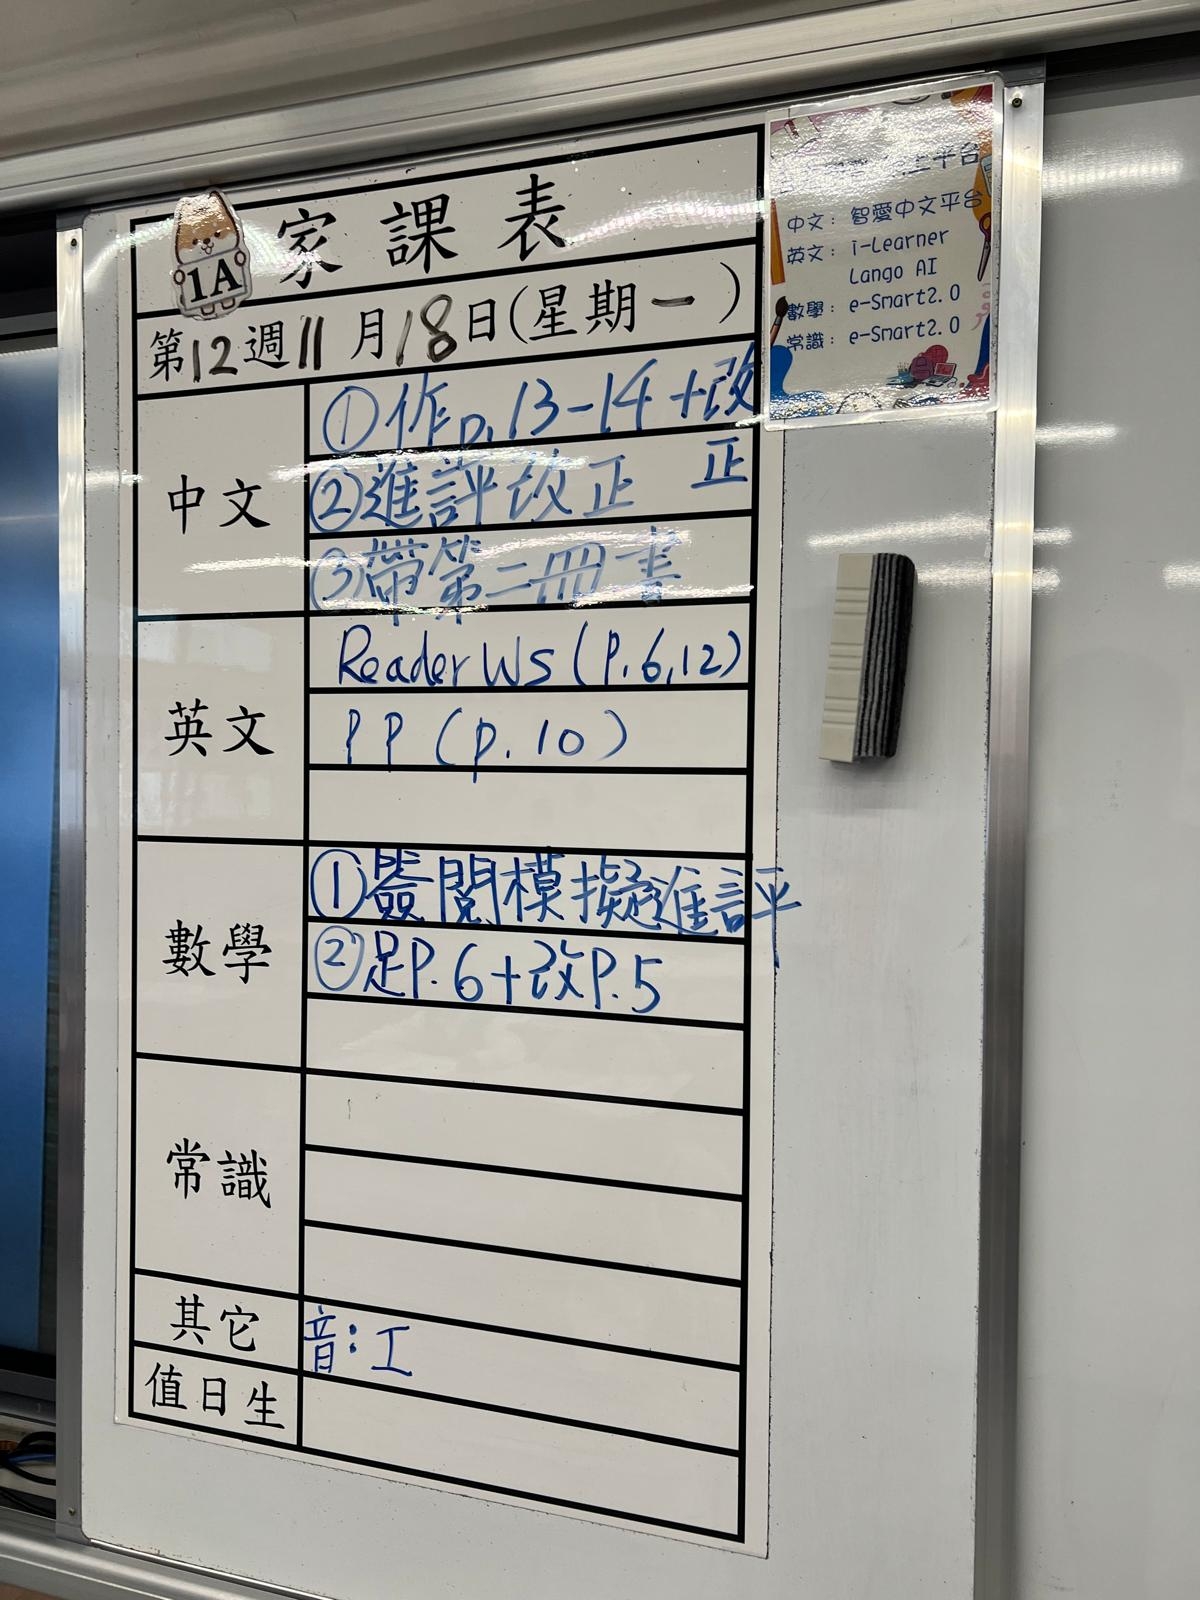 1A 家課表
第12週11月18日(星期一)
中文
①作p.13-14+改正
②進評改正
③帶第二冊書
英文
Reader WS (P.6,12)
PP (p.10)
數學
①簽閱模擬進評
②足P.6+改P.5
常識
其它
音:工
值日生
上平台
中文: 智愛中文平台
英文: i-Learner
Lango AI
數學: e-Smart2.0
常識: e-Smart2.0